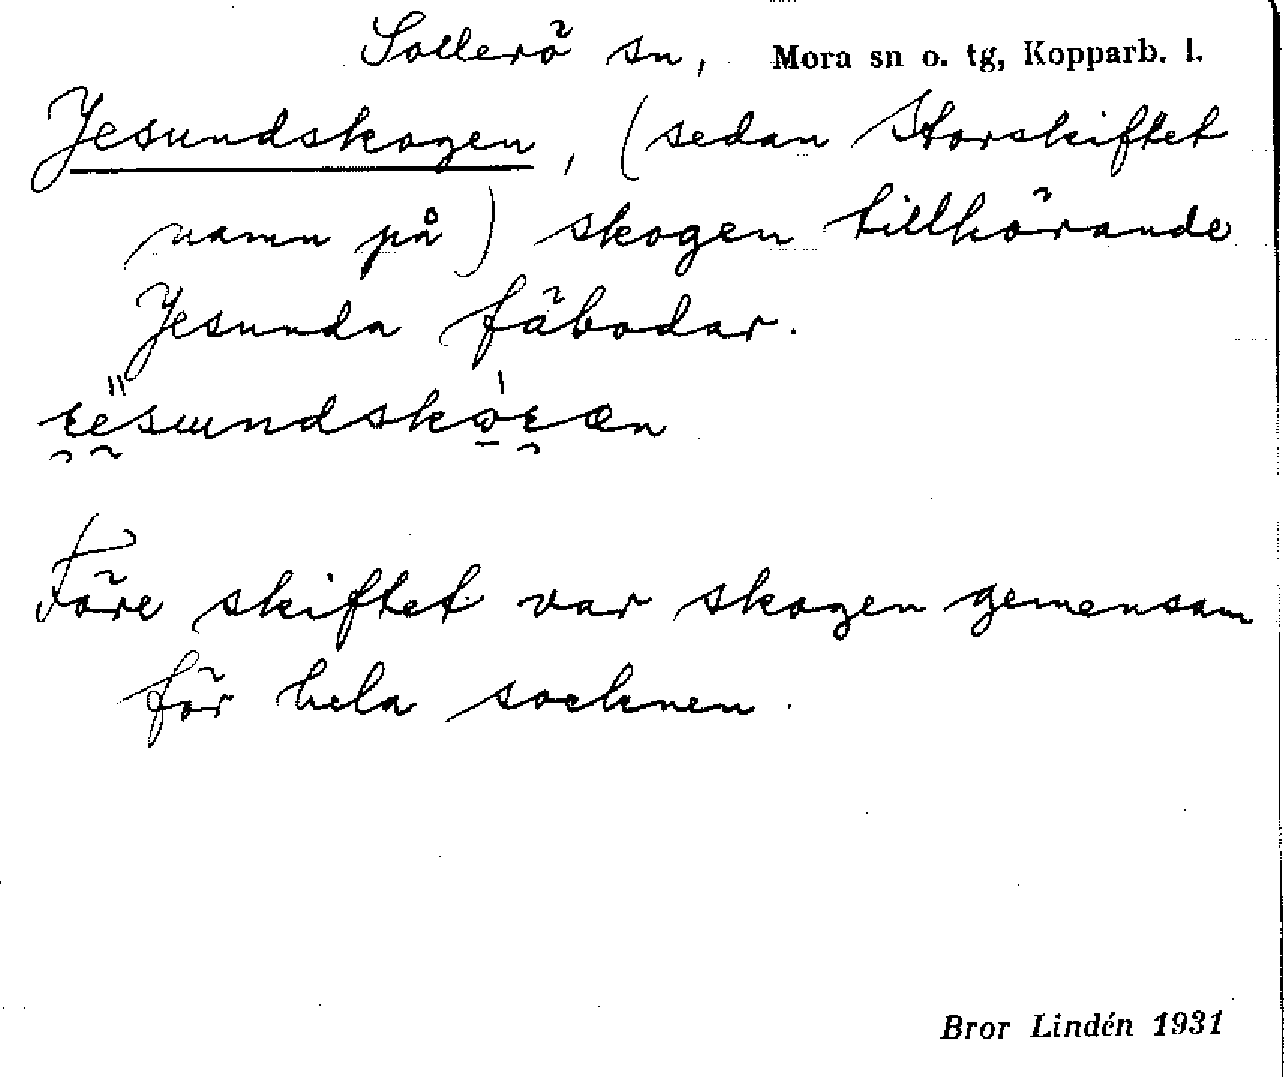 Sollerö sn, Mora sn o. tg, Kopparb. l.
Jesundskogen, (sedan Storskiftet
namn på) skogen tillhörande
Jesunda fäbodar.
Före skiftet var skogen gemensam
för hela socknen.
Bror Lindén 1931